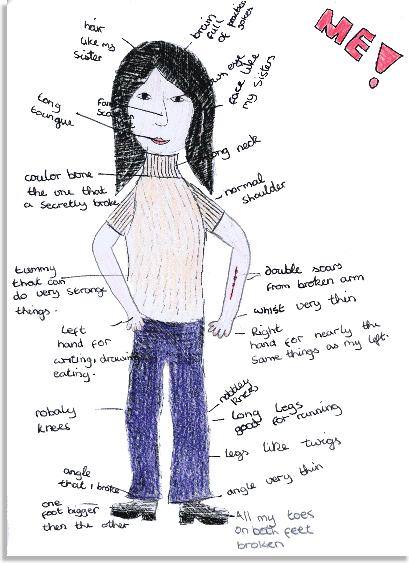 ME!
hair
like my
sister
brain
full
of
jokes
face like
my sisters
long
toungue
long neck
coulor bone
the one that
a secretly broke
normal
shoulder
tummy
that can
do very strange
things.
double scars
from broken arm
whist very thin
Left
hand for
writing, drawing
eating.
Right
hand for nearly the
same things as my left.
nobaly
knees
knees
long legs
good for running
legs like twigs
angle
that I broke
angle very thin
one
foot bigger
then the other
All my toes
on both feet
broken